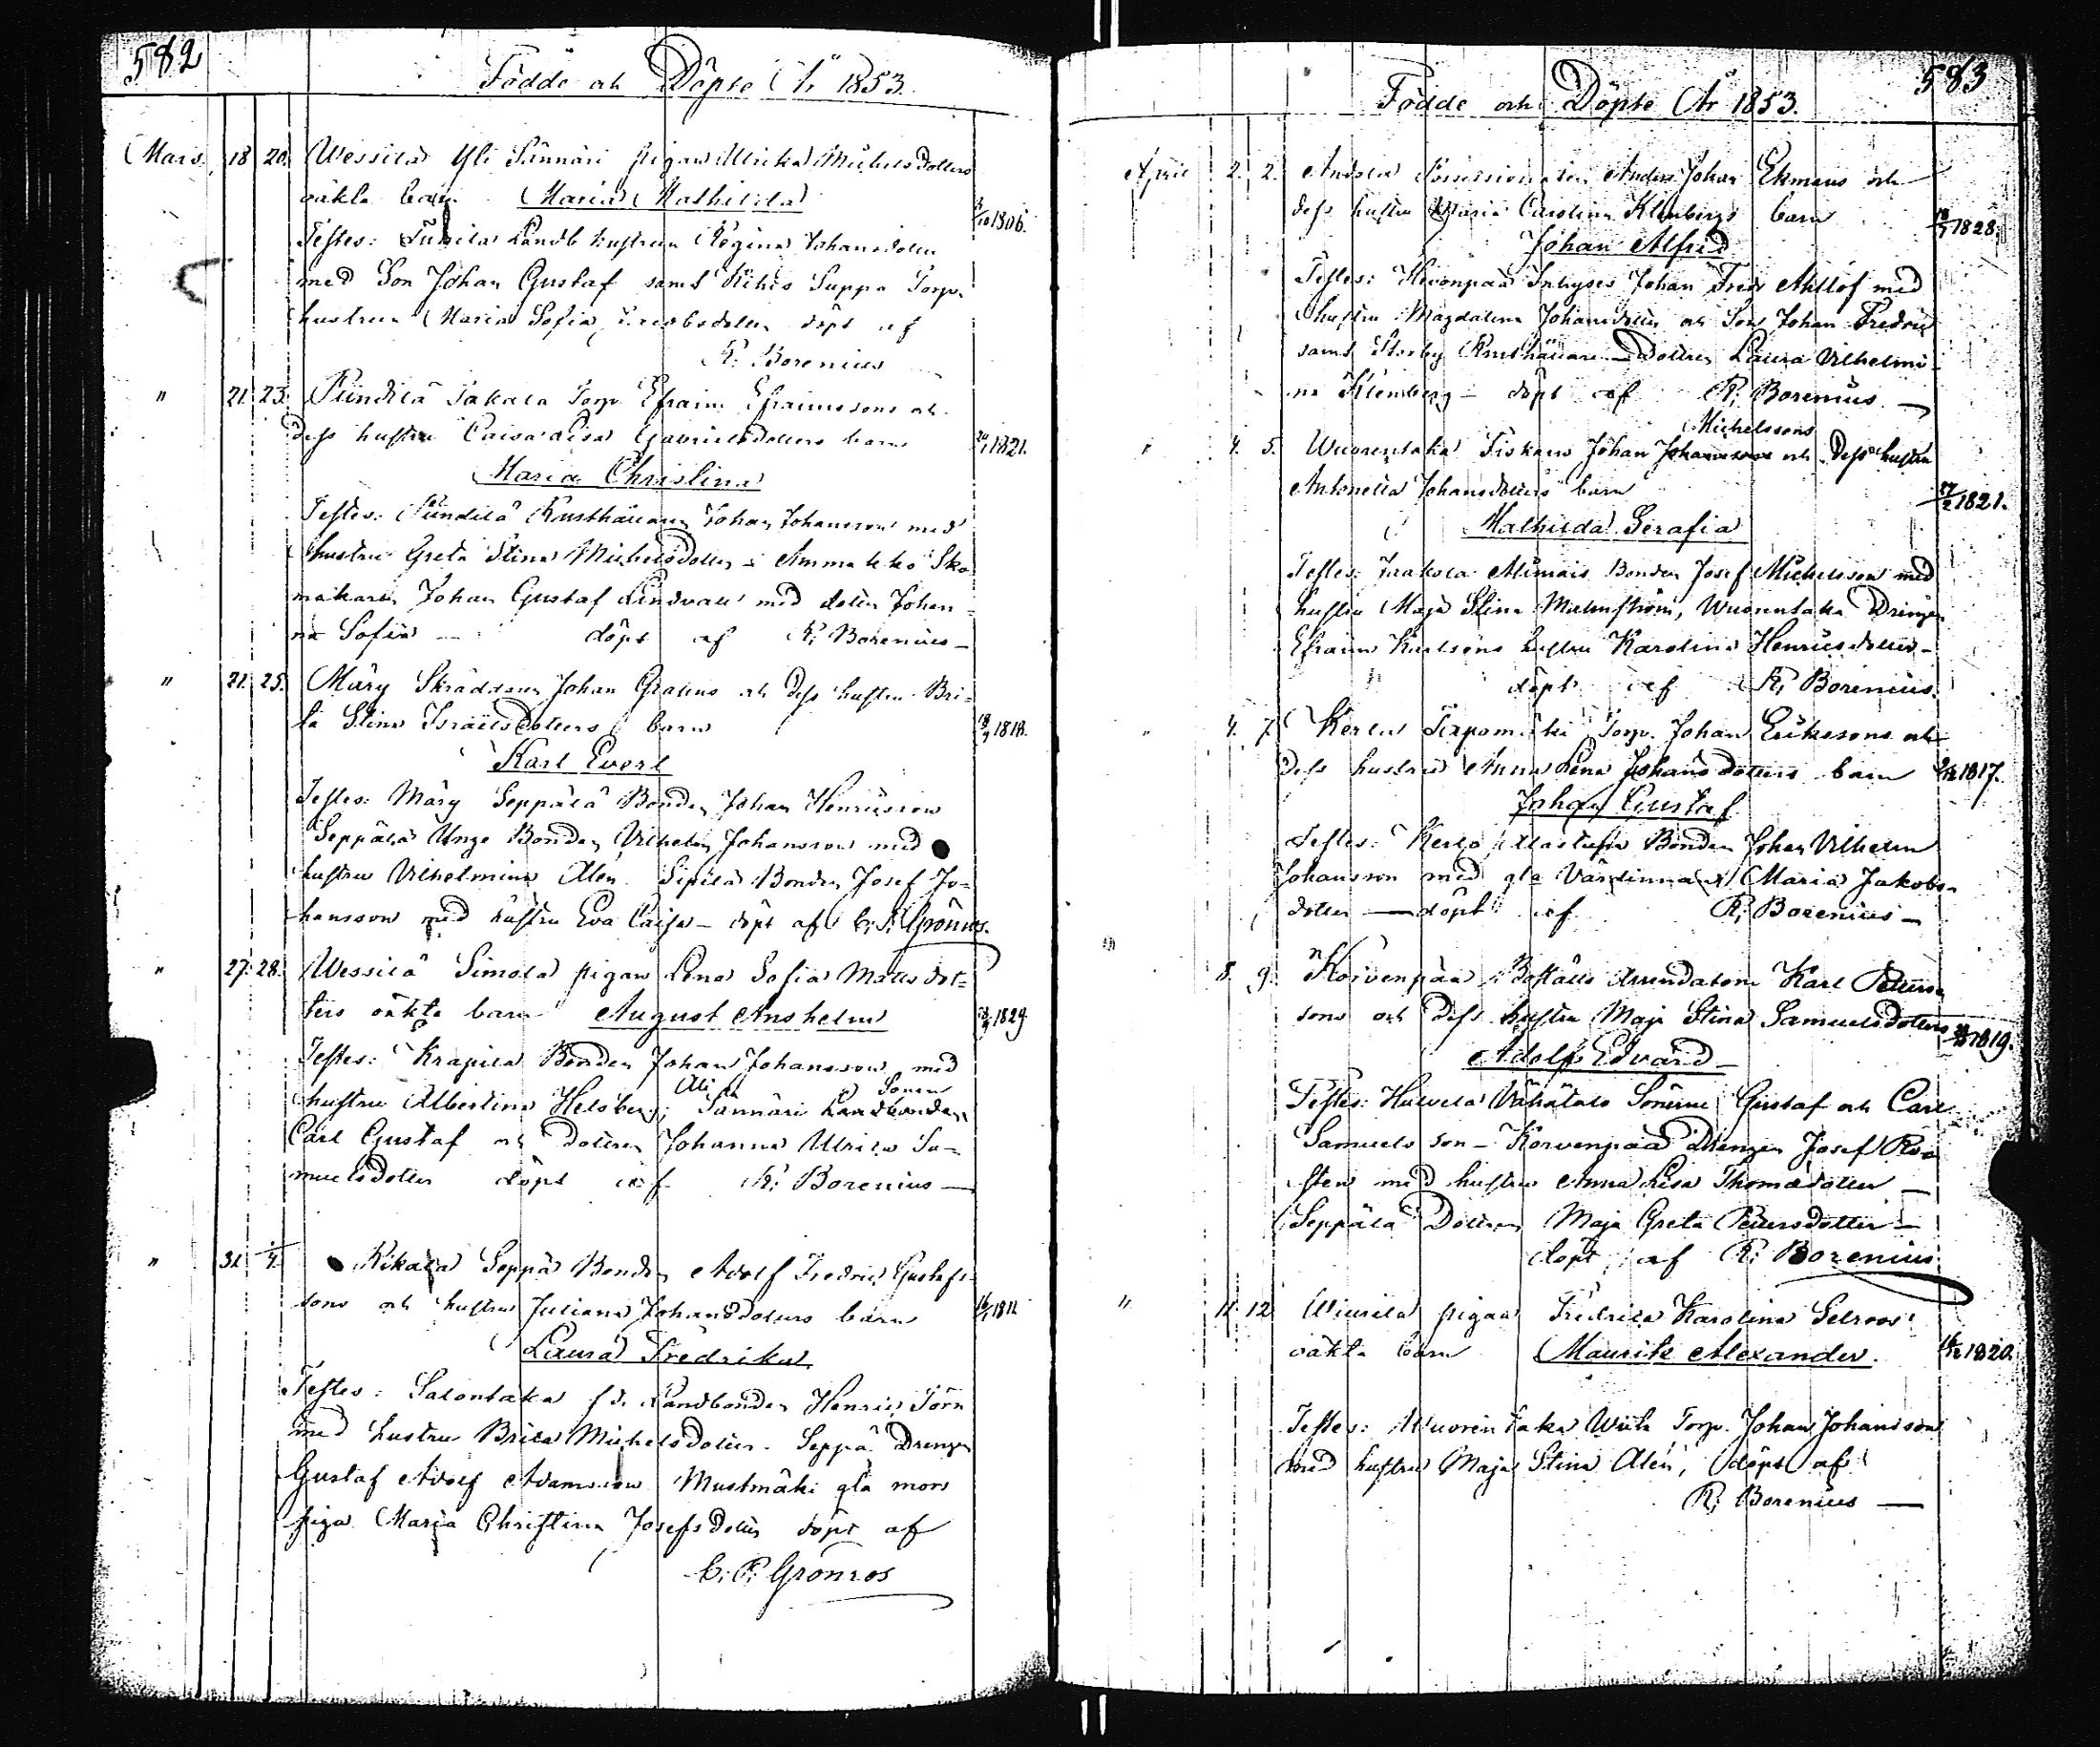 582
Födde och Döpte År 1853.
Mars. 18 20. Wessilä Yli Sännäri pigan Ulrika Michelsdotters
oäkta barn Maria Mathilda 1806.
Testes: Landb hustrun Regina Johansdotter
med Son Johan Gustaf samt Kihis Suppa Torp.
hustrun Maria Sofia dotter döpt af
R. Borenius
" 21. 23. Pundilä Takala Torp. Efraim Efraimssons och
dess hustru Caisa Lisa Gabrielsdotters barn 1821.
Maria Christina
Testes: Pundilä Rusthållaren Johan Johansson med
hustru Greta Stina Michelsdotter - Ammakko Sko
makaren Johan Gustaf Lindvall med dotter Johan-
na Sofia — döpt af R. Borenius —
" 21. 25. Märy Skräddaren Johan Graens och dess hustru Bri-
ta Stina Israelsdotters barn 1818.
Karl Evert
Testes: Märy Seppälä Bonden Johan Henricsson
Seppälä Unge Bonden Vilhelm Johansson med
hustru Vilhelmina Alén. Sipilä Bonden Josef Jo-
hansson med hustru Eva Caisa — döpt af C. P. Grönros.
" 27. 28. Wessilä Simola pigan Lena Sofia Matts dot-
ters oäkta barn August Anshelm 1829
Testes: Krapila Bonden Johan Johansson med
hustru Albertina Helsberg; Ali Sännäri Landbonden Sonen
Carl Gustaf och Dottren Johanna Ulrica Sa-
muelsdotter döpt af R. Borenius —
" 31. Kikala Seppä Bonden Adolf Fredric Gustafs-
sons och hustrus Juliana Johansdotters barn 1811
Laura Fredrika
Testes: Salontaka f.d. Landbonden Henric Törn
med hustru Brita Michelsdotter. Seppä Drengen
Gustaf Adolf Adamsson Mustmäki gla mors
piga Maria Christina Josefsdotter döpt af
C. P. Grönros
583
Födde och Döpte År 1853.
April 2. 2. Possessionaten Anders Johan Ekmans och
dess hustru Maria Carolina Klenbergs barn 1828.
Johan Alfrid
Testes: Hevonpää Inhyses Johan Fredr Ahllöf med
hustru Magdalena Johansdotter och Son Johan Fredric
samt Storby Rusthållare - dottren Laura Vilhelmi-
na Klenberg — döpt af R. Borenius —
" 4. 5. Wuorentaka Fiskars Johan Johanssons Michelssons och Dess hustru
Antonetta Johansdotters barn 1821.
Mathilda Serafia
Testes: Alimais Bonden Josef Michelsson med
hustru Maja Stina Malmström, Wuorentaka Drängen
Efraim Karlsons hustru Karolina Henricsdotter —
döpt af R. Borenius.
" 4. 7. Kerlä Torp. Johan Erikssons och
dess hustrus Anna Lena Johansdotters barn 1817.
Johan Gustaf
Testes: Kerlö Bonden Johan Vilhelm
Johansson med gla Värdinnan Maria Jakobs-
dotter — döpt af R. Borenius —
" 8. 9. Korvenpää Boställs Arrendatorn Karl
sons och Dess hustru Maja Stina Samuelsdotters 1819.
Adolf Edvard —
Testes: Huvela Vähätalo Sönerne Gustaf och Carl
Samuels son — Korvenpää Drengen Josef
sten med hustru Anna Lisa Thomasdotter —
Seppälä Dottren Maja Greta Petersdotter —
döpt af R. Borenius
" 11. 12 Wiurila pigan Fredrica Karolina Selroos
oäkta barn Mauritz Alexander. 1820.
Testes: Wuorentaka Torp. Johan Johansson
med hustru Maja Stina Alén, döpt af
R. Borenius —